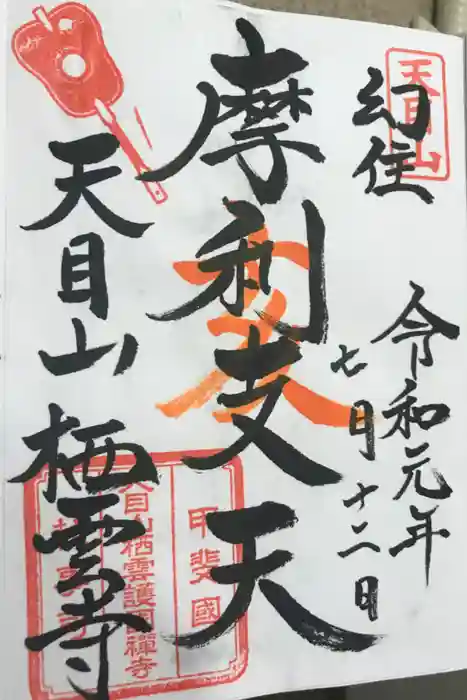 幻住
天目山
令和元年
七月十二日
摩利支天
天目山
栖雲寺
甲斐國
天目山栖雲護國禪寺